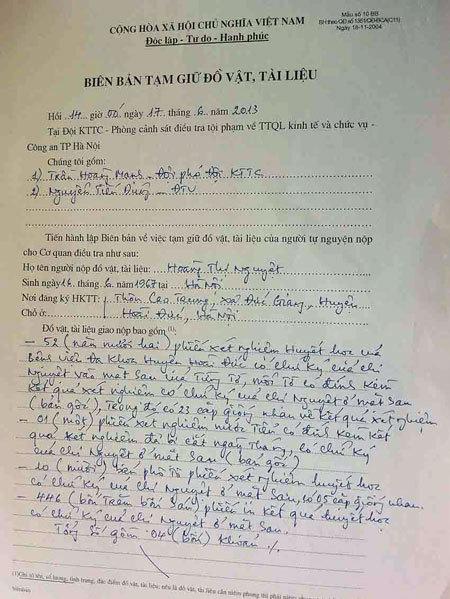 Mẫu số 10 BB
BH theo QĐ số 1351/QĐ-BCA(C11)
Ngày 18-11-2004
CỘNG HÒA XÃ HỘI CHỦ NGHĨA VIỆT NAM
Độc lập - Tự do - Hạnh phúc
BIÊN BẢN TẠM GIỮ ĐỒ VẬT, TÀI LIỆU
Hồi 14 giờ 00 ngày 17 tháng 6 năm 2013
Tại Đội KTTC - Phòng cảnh sát điều tra tội phạm về TTQL kinh tế và chức vụ -
Công an TP Hà Nội
Chúng tôi gồm:
1) Trần Hoàng - Đội phó Đội KTTC
2) Nguyễn Tiến - ĐTV
Tiến hành lập Biên bản về việc tạm giữ đồ vật, tài liệu của người tự nguyện nộp
cho Cơ quan điều tra như sau:
Họ tên người nộp đồ vật, tài liệu: Hoàng Thị Nguyệt
Sinh ngày 16 tháng 6 năm 1967 tại Hà Nội
Nơi đăng ký HKTT: Thôn Cao Trung, xã Đức Giang, Huyện
Chỗ ở: Hoài Đức, Hà Nội
Đồ vật, tài liệu giao nộp bao gồm (1):
- 52 (năm mươi hai) phiếu xét nghiệm Huyết học của
Bệnh viện Đa Khoa Huyện Hoài Đức có chữ ký của chị
Nguyệt vào mặt sau của từng tờ, mỗi tờ có đính kèm
kết quả xét nghiệm có chữ ký chị Nguyệt ở mặt sau
(bản gốc), trong đó có 23 cặp giống nhau về kết quả xét nghiệm
- 01 (một) phiếu xét nghiệm nước tiểu có đính kèm kết
quả xét nghiệm đã bị cắt ngày tháng, có chữ ký
của chị Nguyệt ở mặt sau (bản gốc)
- 10 (mười) bản phô tô phiếu xét nghiệm huyết học
có chữ ký của chị Nguyệt ở mặt sau, có 05 cặp giống nhau.
- 446 (bốn trăm bốn sáu) phiếu in kết quả huyết học
có chữ ký của chị Nguyệt ở mặt sau.
Tổng số gồm 04 (bốn) khoản ./.
(1)Ghi rõ tên, số lượng, tình trạng, đặc điểm đồ vật, tài liệu; nếu là đồ vật, tài liệu cần niêm phong thì phải niêm